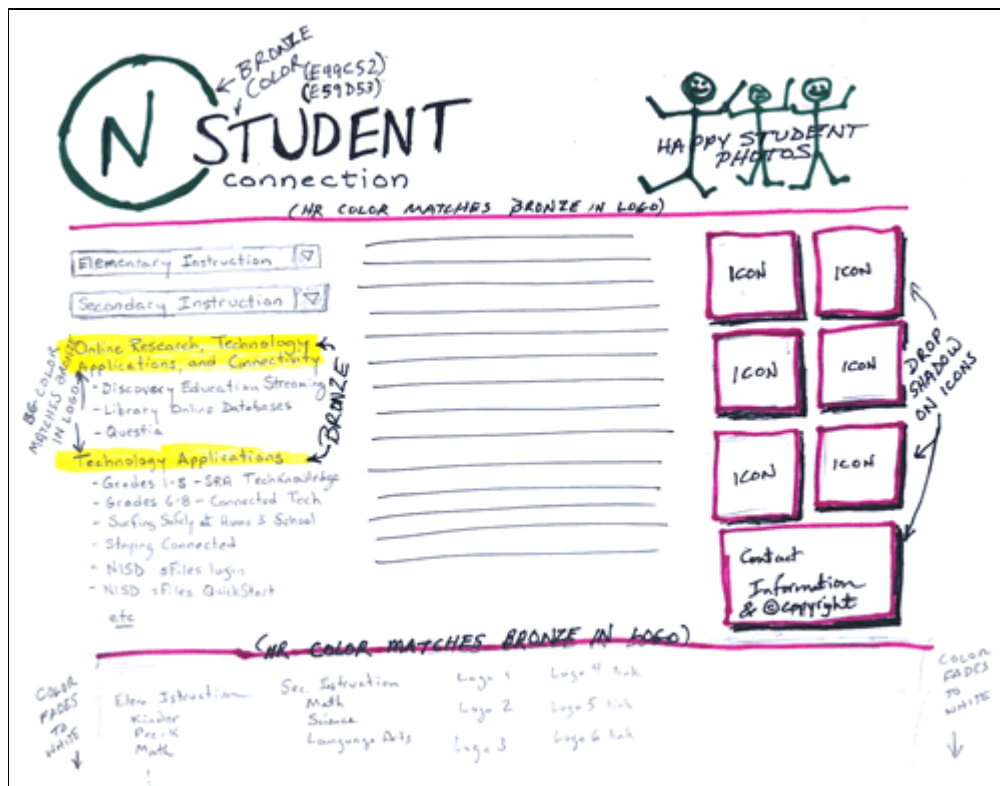 BRONZE
COLOR (E99C52)
(E59D53)
N
STUDENT
connection
HAPPY STUDENT
PHOTOS
(HR COLOR MATCHES BRONZE IN LOGO)
Elementary Instruction
Secondary Instruction
Online Research, Technology
Applications, and Connectivity
- Discovery Education Streaming
- Library Online Databases
- Questia
Technology Applications
- Grades 1-5 - SRA TechKnowledge
- Grades 6-8 - Connected Tech
- Surfing Safely at Home & School
- Staying Connected
- NISD sFiles login
- NISD sFiles QuickStart
etc
BG COLOR
MATCHES BRONZE
IN LOGO
BRONZE
ICON
ICON
ICON
ICON
ICON
ICON
DROP
SHADOW
ON ICONS
Contact
Information
& © copyright
(HR COLOR MATCHES BRONZE IN LOGO)
COLOR
FADES
TO
WHITE
Elem Istruction
Kinder
Pre-K
Math
Sec. Istruction
Math
Science
Language Arts
Logo 1
Logo 2
Logo 3
Logo 4 link
Logo 5 link
Logo 6 link
COLOR
FADES
TO
WHITE